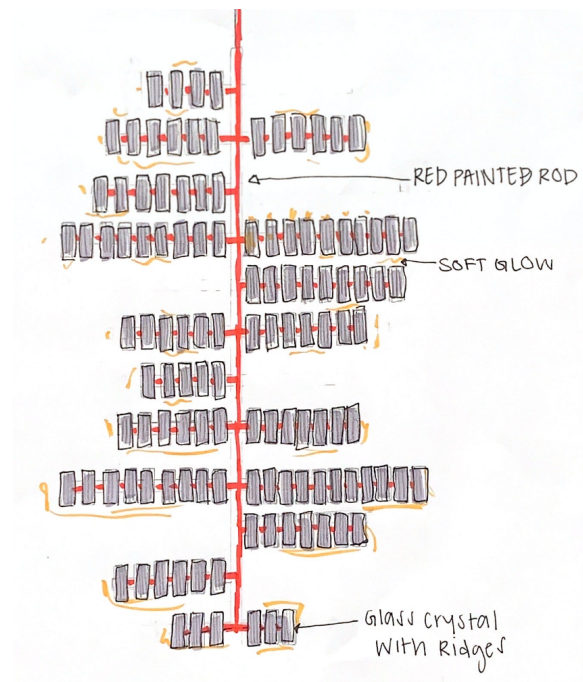 RED PAINTED ROD
SOFT GLOW
Glass crystal
with Ridges